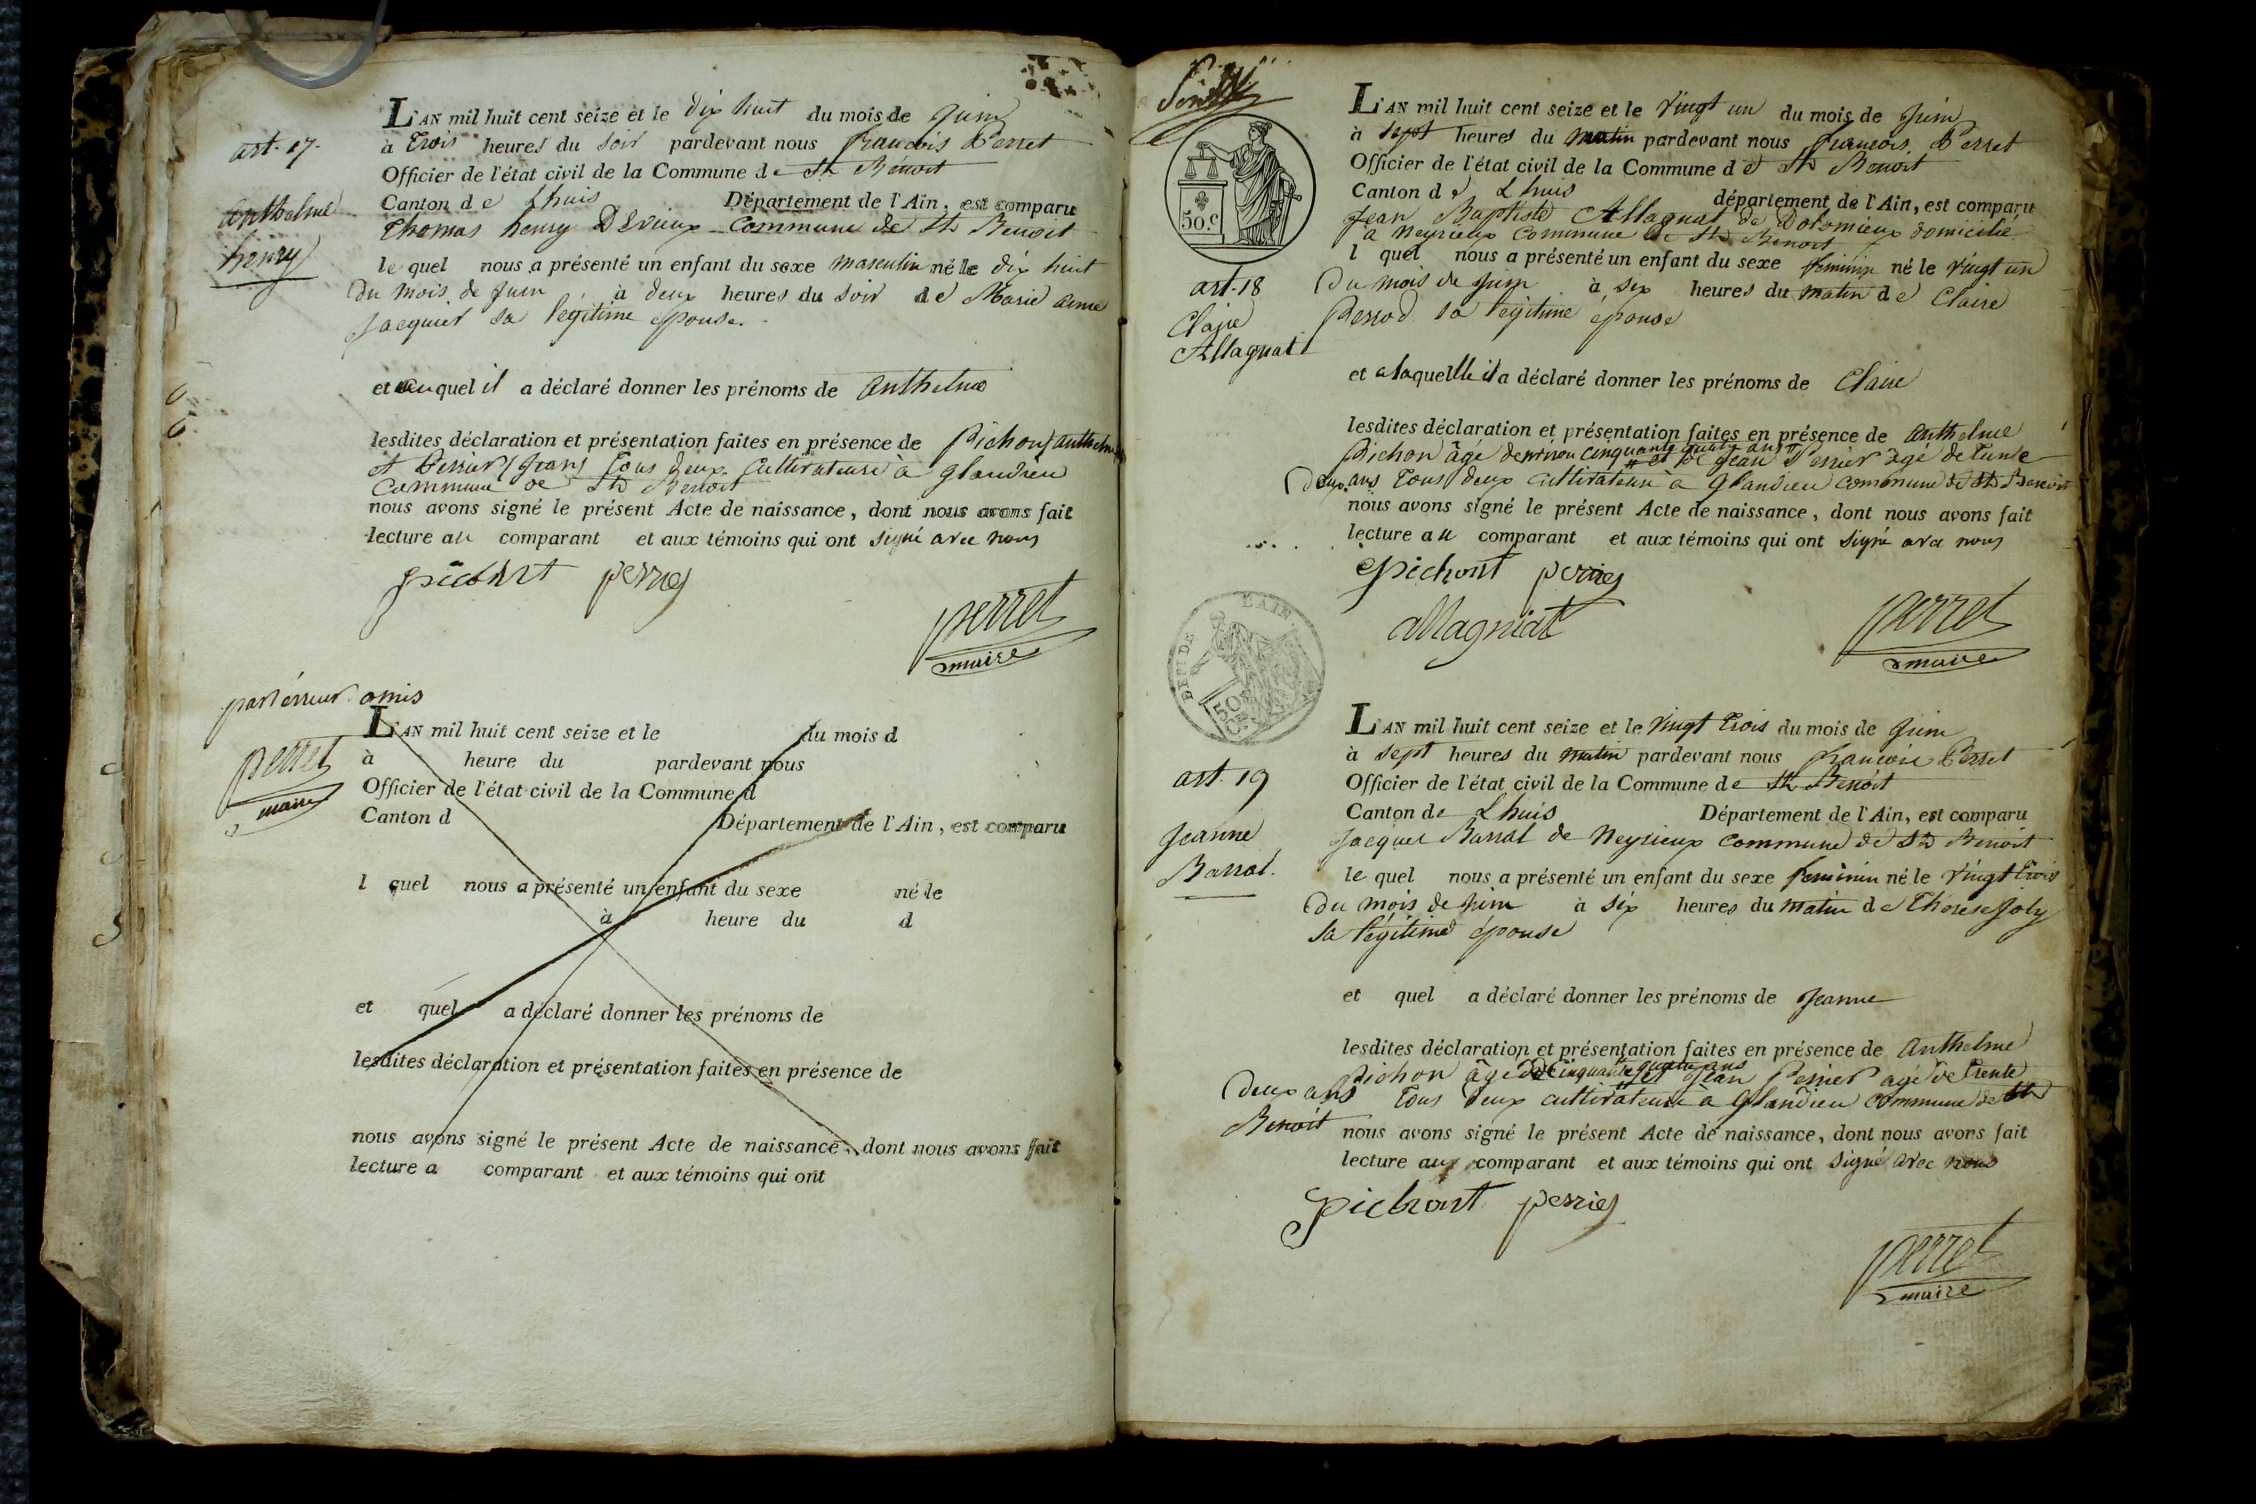 art. 17.
Anthelme
henry
L'AN mil huit cent seize et le dix huit du mois de Juin
à trois heures du soir pardevant nous françois Perret
Officier de l'état civil de la Commune de St Benoit
Canton de Lhuis Département de l'Ain, est comparu
Thomas henry Commune de St Benoit
le quel nous a présenté un enfant du sexe masculin né le dix huit
du mois de Juin à deux heures du soir de Marie anne
Jacquet sa légitime épouse.
et auquel il a déclaré donner les prénoms de anthelme
lesdites déclaration et présentation faites en présence de Pichon anthelme
et Perrier Jean tous deux cultivateurs à glandieu
Commune de St Benoit
nous avons signé le présent Acte de naissance, dont nous avons fait
lecture au comparant et aux témoins qui ont signé avec nous
pichont perrier
perret
maire
par érreur omis
perret
maire
L'AN mil huit cent seize et le du mois d
à heure du pardevant nous
Officier de l'état civil de la Commune d
Canton d Département de l'Ain, est comparu
l quel nous a présenté un enfant du sexe né le
à heure du d
et quel a déclaré donner les prénoms de
lesdites déclaration et présentation faites en présence de
nous avons signé le présent Acte de naissance, dont nous avons fait
lecture a comparant et aux témoins qui ont
50.c
art. 18
Claire
Allagnat
L'AN mil huit cent seize et le vingt un du mois de Juin
à sept heures du matin pardevant nous françois Perret
Officier de l'état civil de la Commune de St Benoit
Canton de Lhuis département de l'Ain, est comparu
Jean Baptiste Allagnat de Dolomieux domicilié
a Neyrieux commune de St Benoit
l quel nous a présenté un enfant du sexe feminin né le vingt un
du mois de Juin à six heures du matin de Claire
Perrod sa légitime épouse
et a laquelle il a déclaré donner les prénoms de Claire
lesdites déclaration et présentation faites en présence de anthelme
Pichon âgé de cinquante quatre ans
et de Jean Perrier âgé de trente
deux ans tous deux cultivateurs a Glandieu commune de St Benoit
nous avons signé le présent Acte de naissance, dont nous avons fait
lecture au comparant et aux témoins qui ont signé avec nous
pichont perrier
allagniat
perret
maire
DEPT DE L'AIN
art. 19
Jeanne
Barral.
L'AN mil huit cent seize et le vingt trois du mois de Juin
à sept heures du matin pardevant nous françois Perret
Officier de l'état civil de la Commune de St Benoit
Canton de Lhuis Département de l'Ain, est comparu
Jacques Barral de Neyrieux commune de St Benoit
le quel nous a présenté un enfant du sexe feminin né le vingt trois
du mois de Juin à six heures du matin de Therese Joly
sa légitime épouse
et quel a déclaré donner les prénoms de Jeanne
lesdites déclaration et présentation faites en présence de Anthelme
Pichon âgé de cinquante quatre ans
et Jean Perrier agé de trente
deux ans tous deux cultivateurs à Glandieu commune de St
Benoit
nous avons signé le présent Acte de naissance, dont nous avons fait
lecture au comparant et aux témoins qui ont signé avec nous
pichont perrier
perret
maire